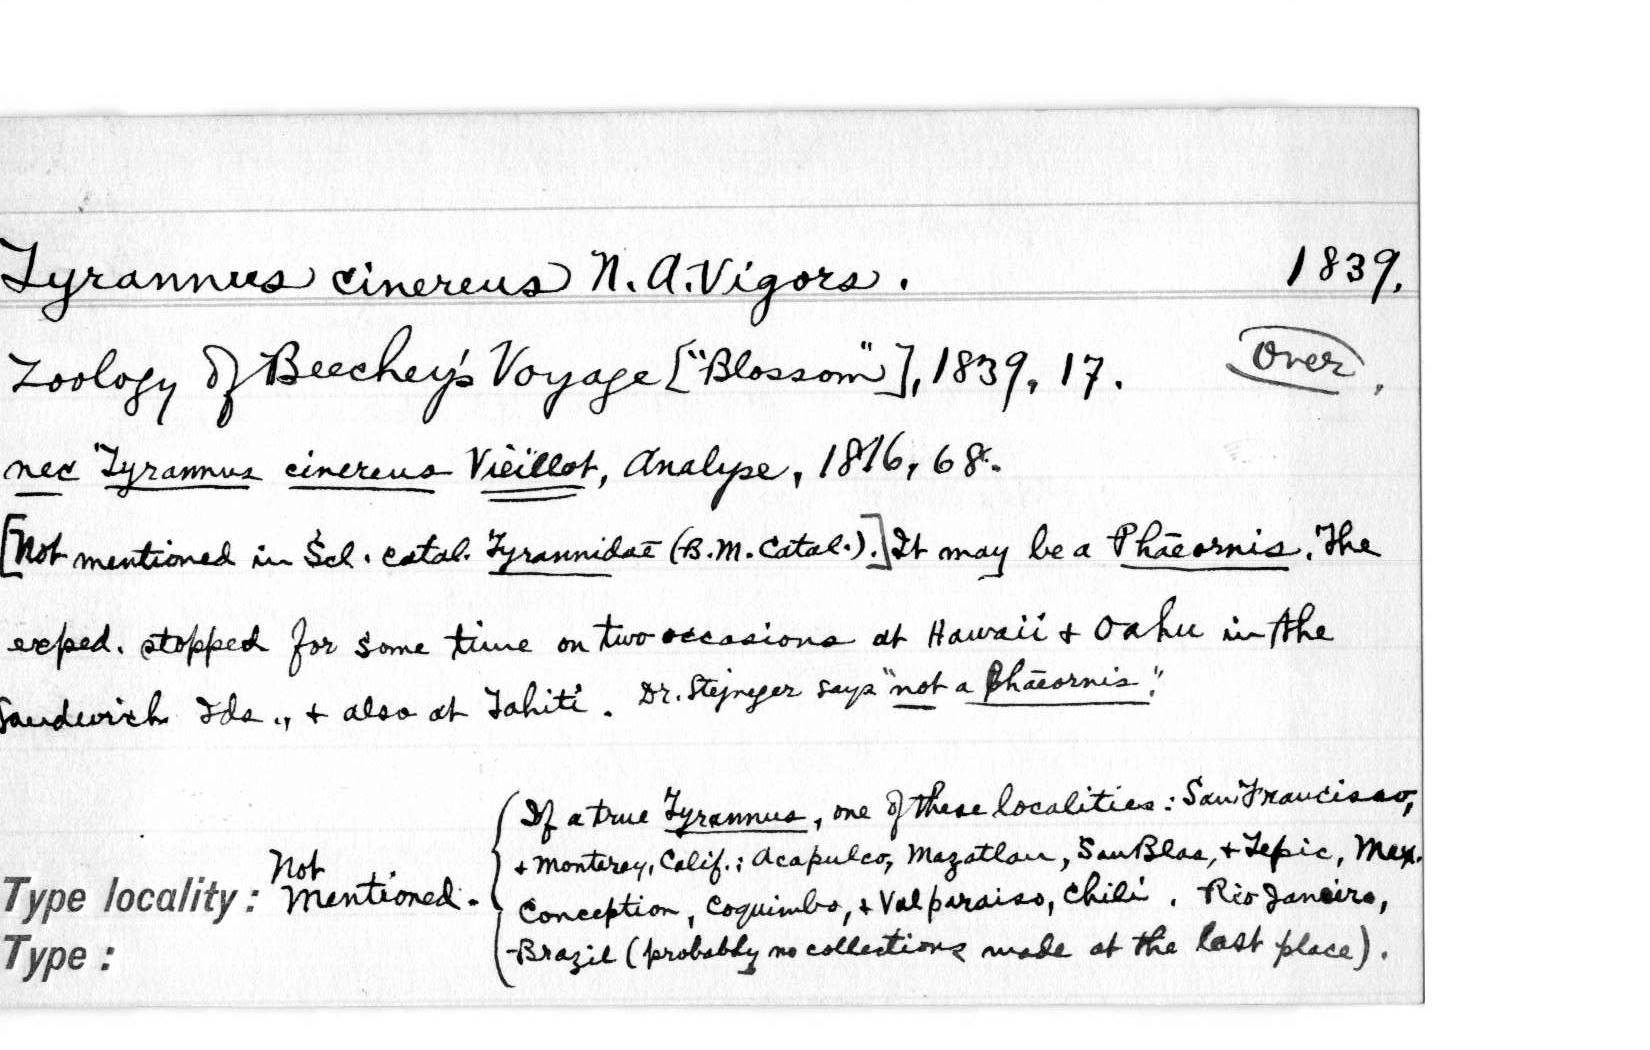 Tyrannus cinereus N. A. Vigors. 1839.
Zoology of Beechey's Voyage ["Blossom"], 1839, 17. Over,
nec Tyrannus cinereus Vieillot, Analyse, 1816, 68.
[Not mentioned in Scl. Catal. Tyrannidae (B.M. Catal.).] It may be a Phaeornis. The
exped. stopped for some time on two occasions at Hawaii & Oahu in the
Sandwich Ids., & also at Tahiti. Dr. Stejneger says "not a Phaeornis".
If a true Tyrannus, one of these localities: San Francisco,
& Monterey, Calif.; Acapulco, Mazatlan, San Blas, & Tepic, Mex.
Type locality: Not Mentioned. Conception, Coquimbo, & Valparaiso, Chili. Rio Janeiro,
Type: Brazil (probably no collections made at the last place).